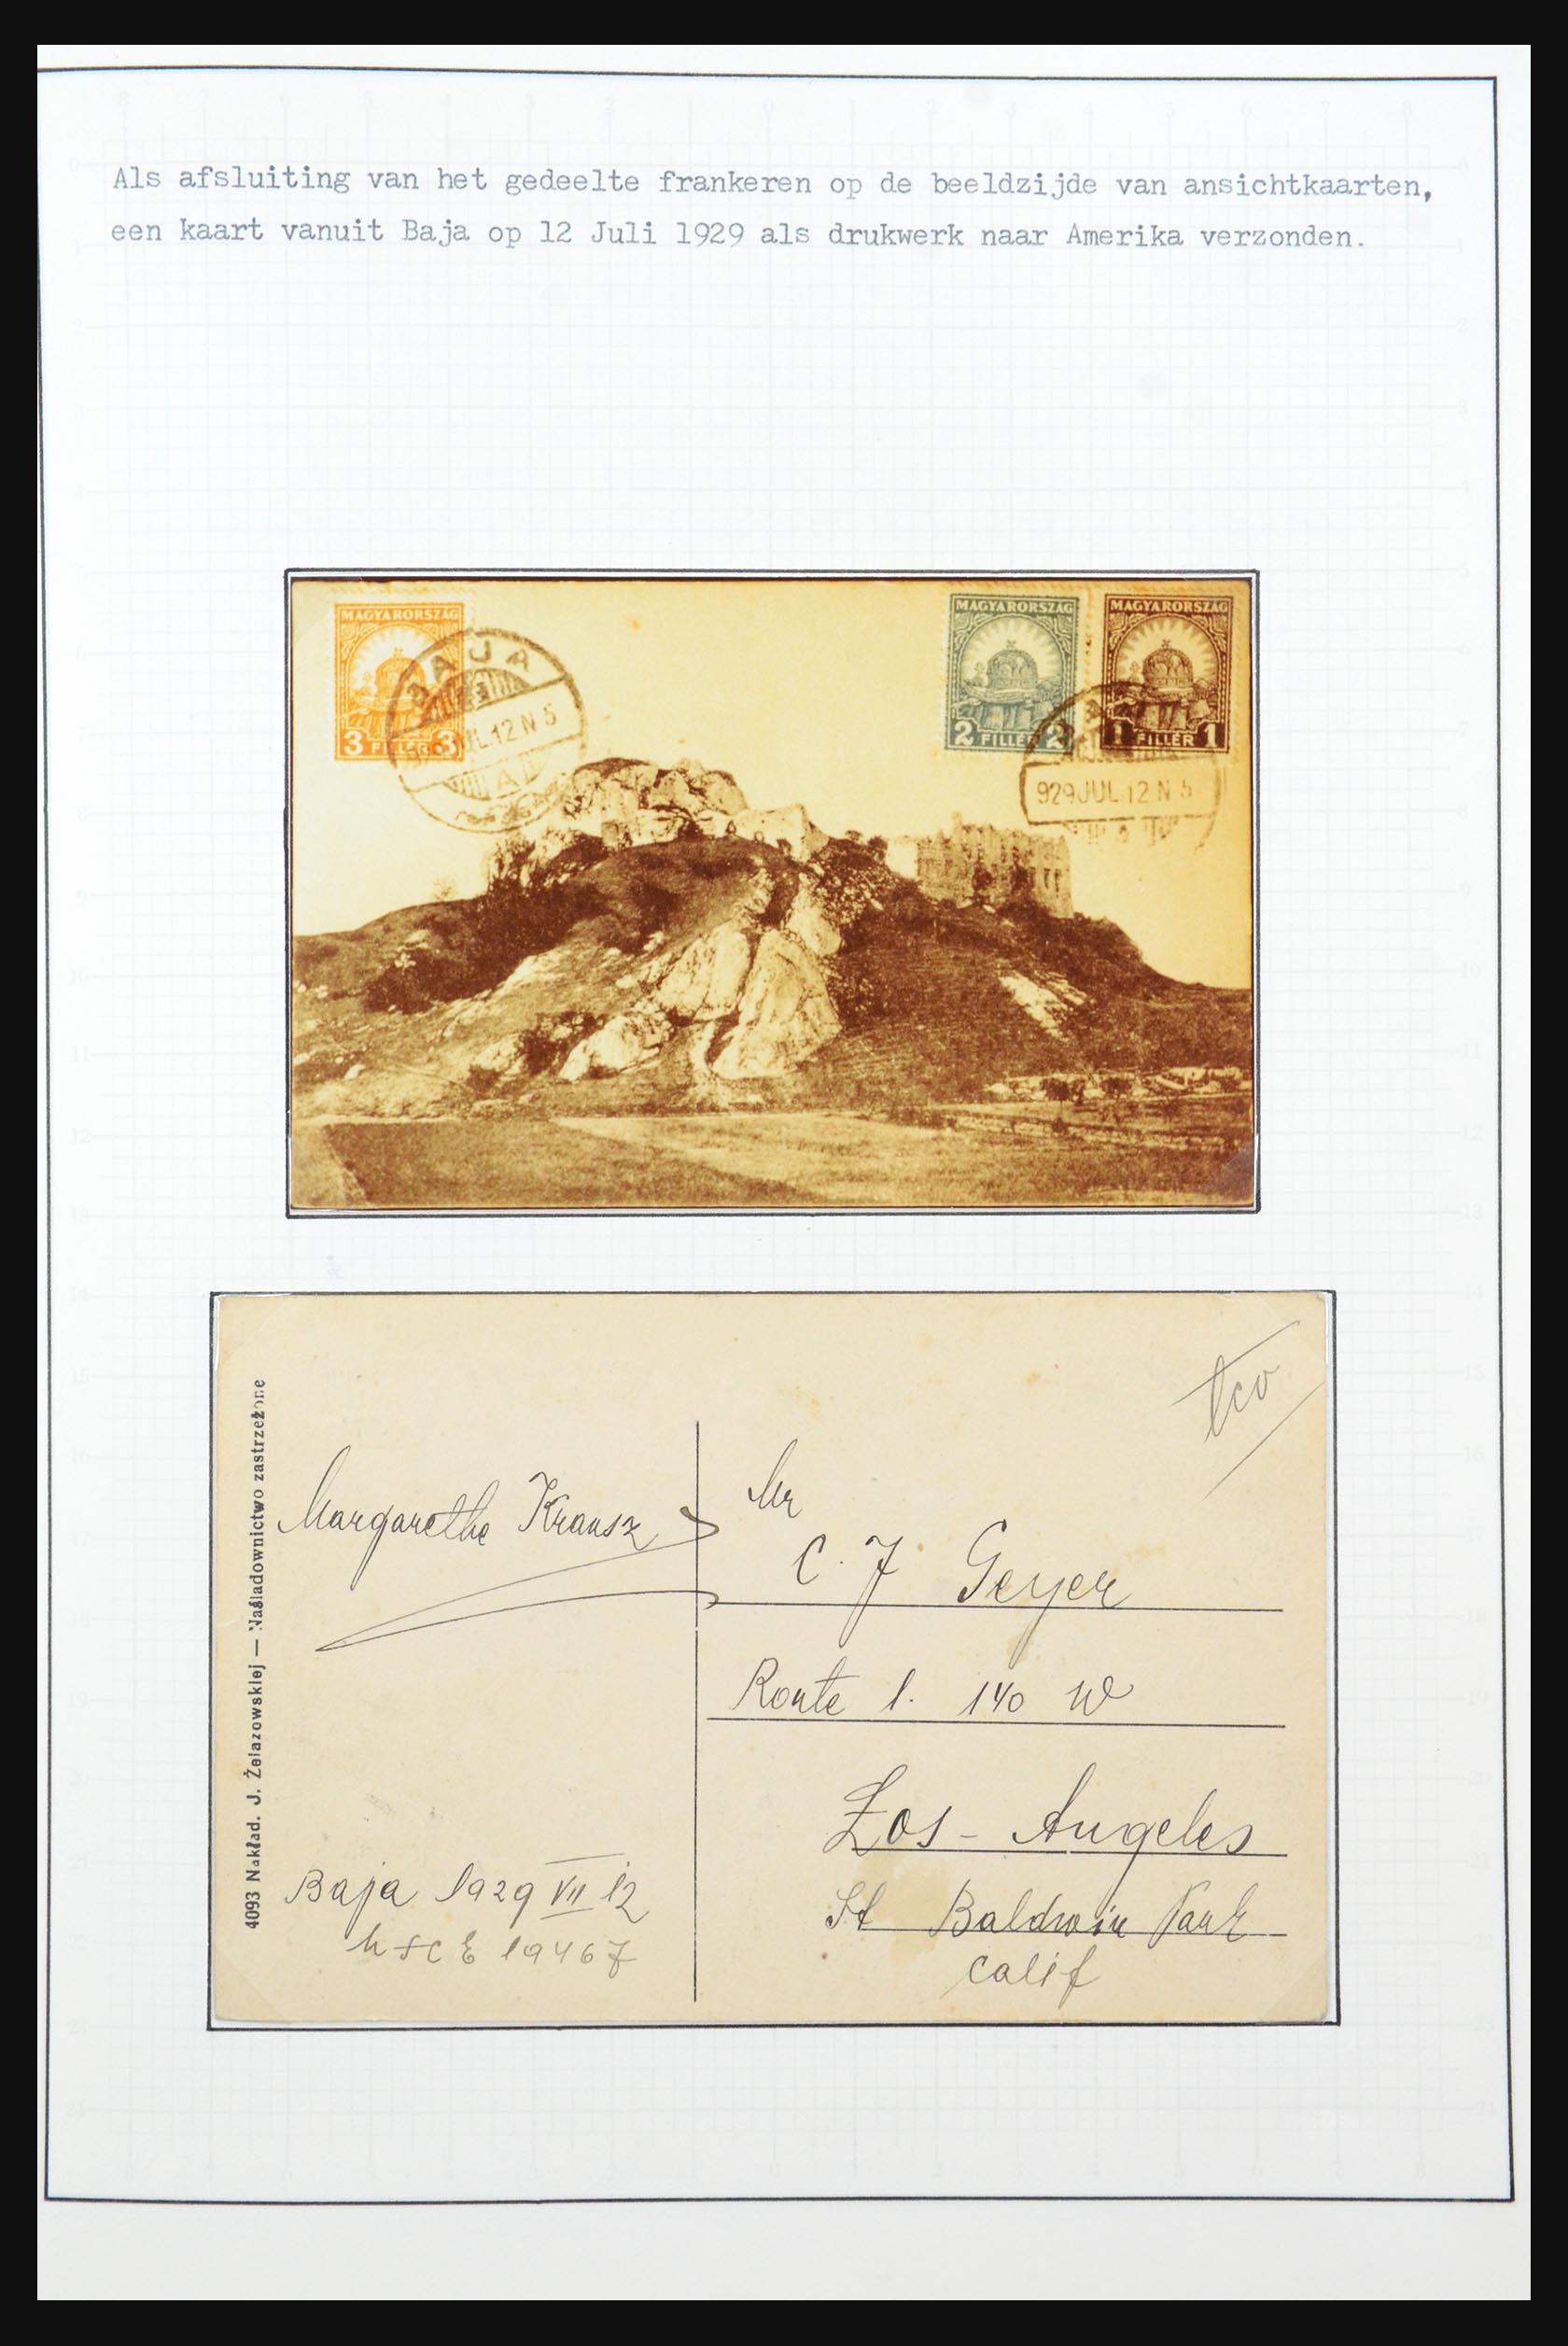 Als afsluiting van het gedeelte frankeren op de beeldzijde van ansichtkaarten,
een kaart vanuit Baja op 12 Juli 1929 als drukwerk naar Amerika verzonden.
MAGYARORSZÁG
3 FILLER 3
BAJA
JUL.12 N 5
A
MAGYARORSZÁG
2 FILLER 2
MAGYARORSZÁG
1 FILLER 1
929 JUL 12 N 5
4093 Nakład. J. Żelazowskiej — Naśladownictwo zastrzeżone
Margarethe Krausz
Baja 1929 VII 12
19467
Mr
C. J Geyer
Route 1. 140 W
Los-Angeles
St Baldwin Park
Calif